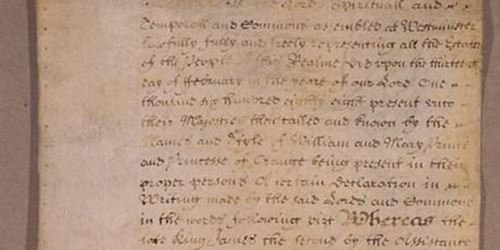 Lords Spirituall and
Temporall and Commons assembled at Westminster
lawfully fully and freely representing all the Estates
of the People of this Realme did upon the thirteenth
day of February in the yeare of our Lord One
thousand six hundred eighty eight present unto
their Majesties then called and known by the
Names and Style of William and Mary Prince
and Princesse of Orange being present in their
proper persons A certain Declaration in
Writing made by the said Lords and Commons
in the words following vizt Whereas the
late King James the second by the Assistance